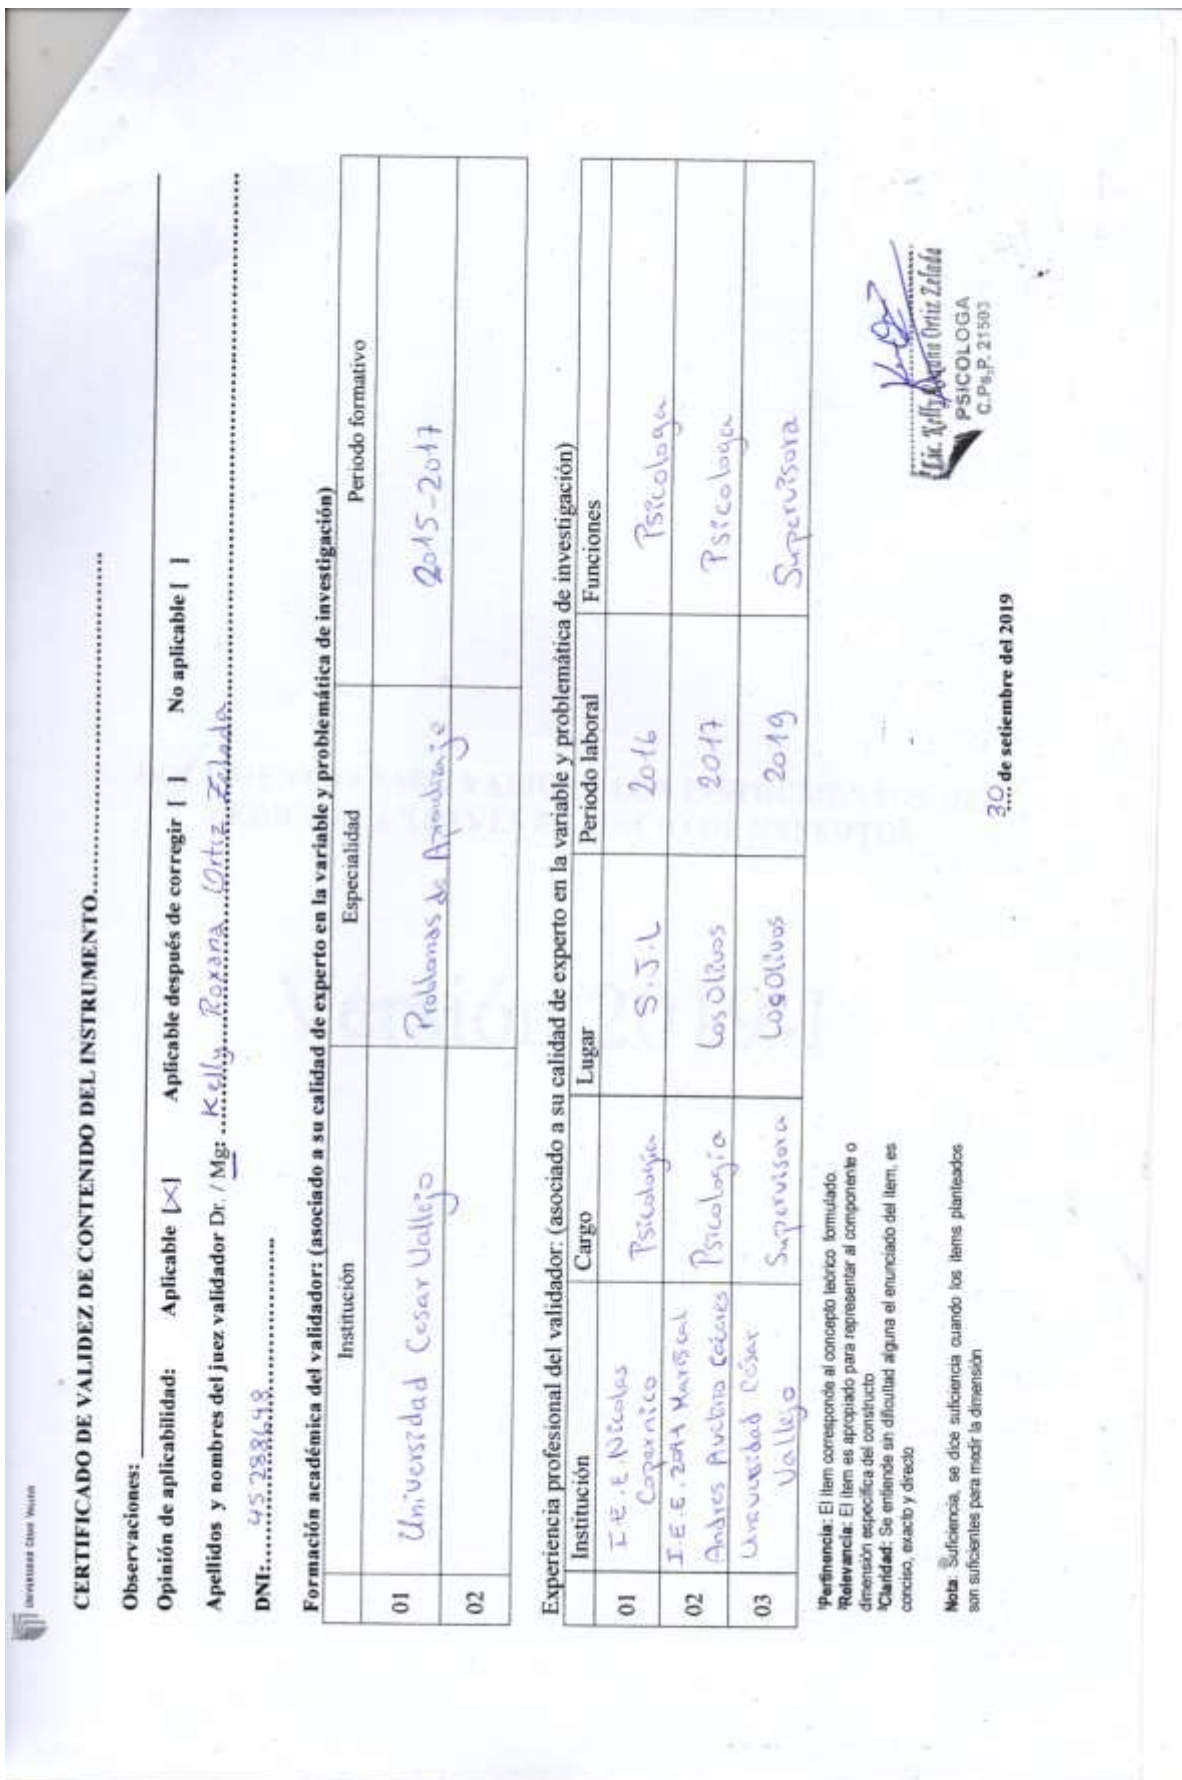 UNIVERSIDAD CÉSAR VALLEJO
CERTIFICADO DE VALIDEZ DE CONTENIDO DEL INSTRUMENTO
Observaciones:
Opinión de aplicabilidad: Aplicable [X] Aplicable después de corregir [ ] No aplicable [ ]
Apellidos y nombres del juez validador Dr. / Mg: Kelly Roxana Ortiz Zelada
DNI: 45288698
Formación académica del validador: (asociado a su calidad de experto en la variable y problemática de investigación)
Institución Especialidad Periodo formativo
01 Universidad Cesar Vallejo Problemas de Aprendizaje 2015-2017
02
Experiencia profesional del validador: (asociado a su calidad de experto en la variable y problemática de investigación)
Institución Cargo Lugar Periodo laboral Funciones
01 I.E.E. Nicolas Copernico Psicología S.J.L 2016 Psicologa
02 I.E.E. 2044 Mariscal Andres Avelino Cáceres Psicología Los Olivos 2017 Psicologa
03 Universidad César Vallejo Supervisora Los Olivos 2019 Supervisora
¹Pertinencia: El ítem corresponde al concepto teórico formulado.
²Relevancia: El ítem es apropiado para representar al componente o
dimensión específica del constructo
³Claridad: Se entiende sin dificultad alguna el enunciado del ítem, es
conciso, exacto y directo
Nota: Suficiencia, se dice suficiencia cuando los ítems planteados
son suficientes para medir la dimensión
30 de setiembre del 2019
Lic. Kelly Roxana Ortiz Zelada
PSICOLOGA
C.Ps.P. 21503